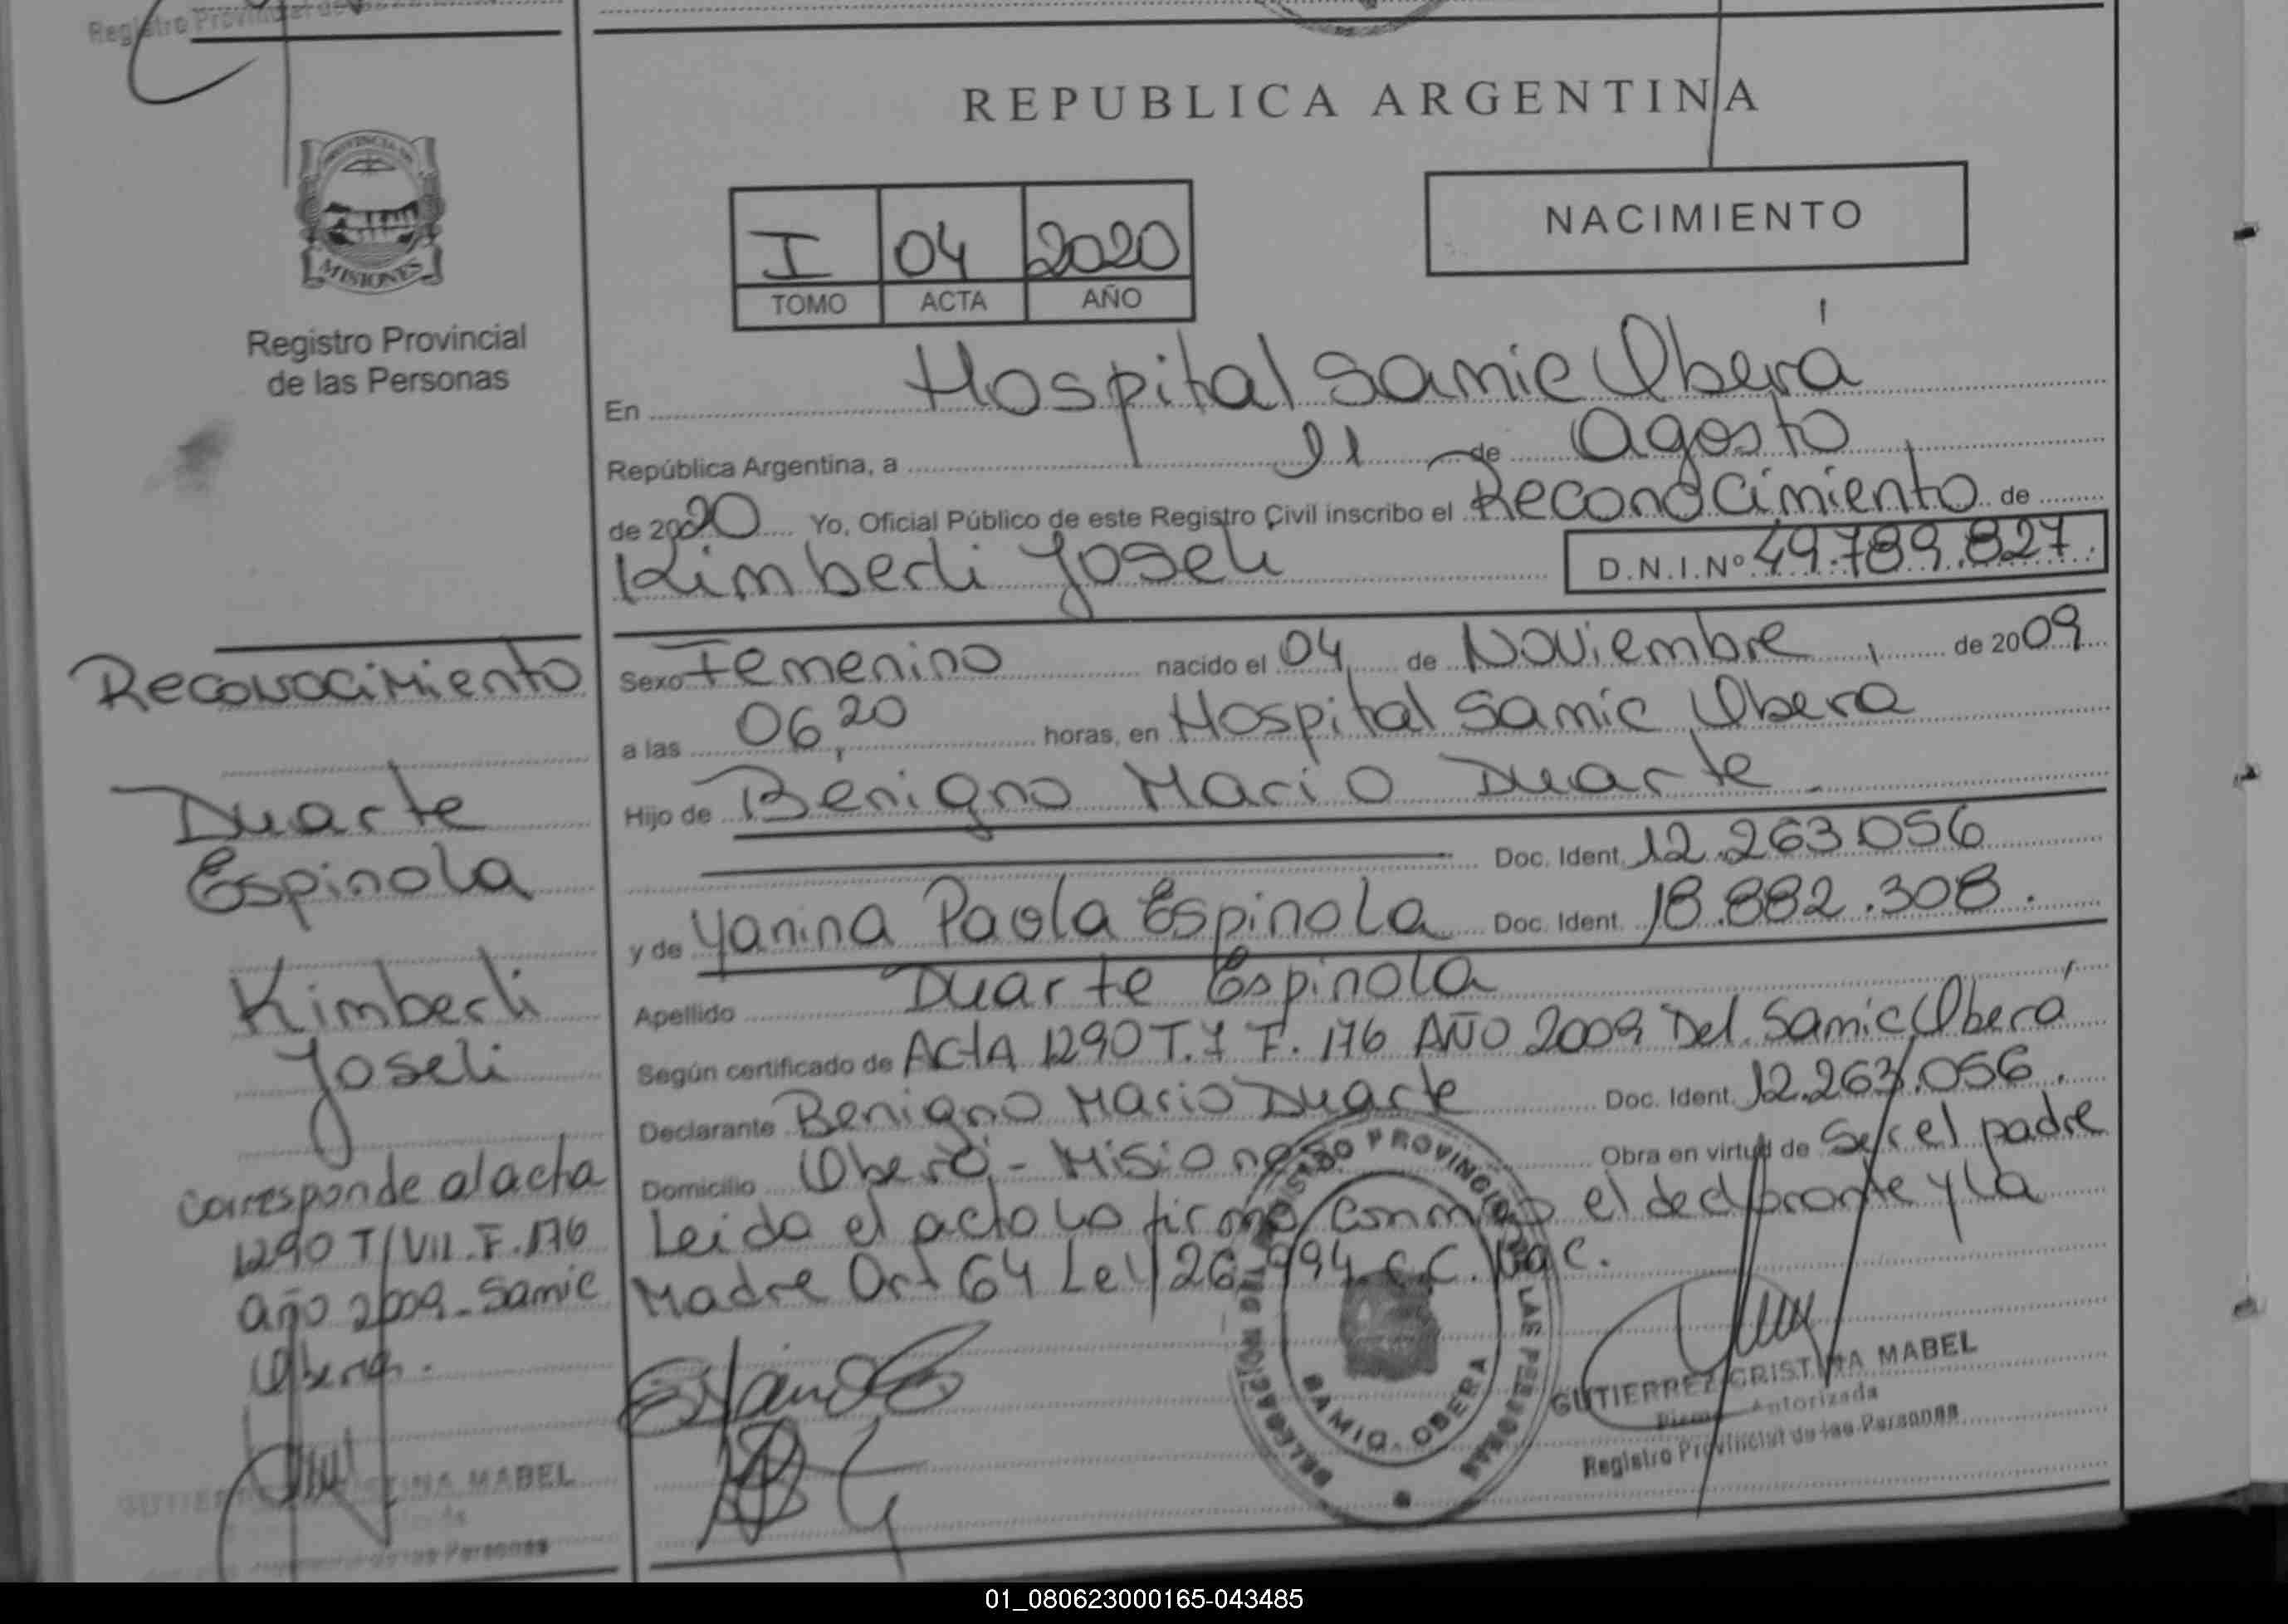 Registro Provincial de
REPUBLICA ARGENTINA
PROVINCIA DE
MISIONES
Registro Provincial
de las Personas
I 04 2020
TOMO ACTA AÑO
NACIMIENTO
En Hospital Samic Oberá
República Argentina, a 21 de agosto
de 2020 Yo, Oficial Público de este Registro Civil inscribo el Reconocimiento de
Kimberli Joseli D.N.I.Nº 49.789.827.
Sexo Femenino nacido el 04 de Noviembre de 2009
a las 06,20 horas, en Hospital Samic Obera
Hijo de Benigno Mario Duarte
Doc. Ident. 12.263.056
y de Yanina Paola Espinola Doc. Ident. 18.882.308.
Apellido Duarte Espinola
Según certificado de Acta 1290 T. F. 176 AÑO 2009 Del Samic Oberá
Declarante Benigno Mario Duarte Doc. Ident. 12.263.056.
Domicilio Oberá - Misiones Obra en virtud de Ser el padre
Leida el acta la firma conmigo el declarante y la
Madre Art 64 Ley 26.994 C.C.
Reconocimiento
Duarte
Espinola
Kimberli
Joseli
Corresponde al acta
1290 T/VII F. 176
año 2009 - Samic
Obera.
GUTIERREZ CRISTINA MABEL
Firma Autorizada
Registro Provincial de las Personas
REGISTRO PROVINCIAL DE LAS PERSONAS
DELEGACION
SAMIC. OBERA
CRISTINA MABEL
de las Personas
01_080623000165-043485